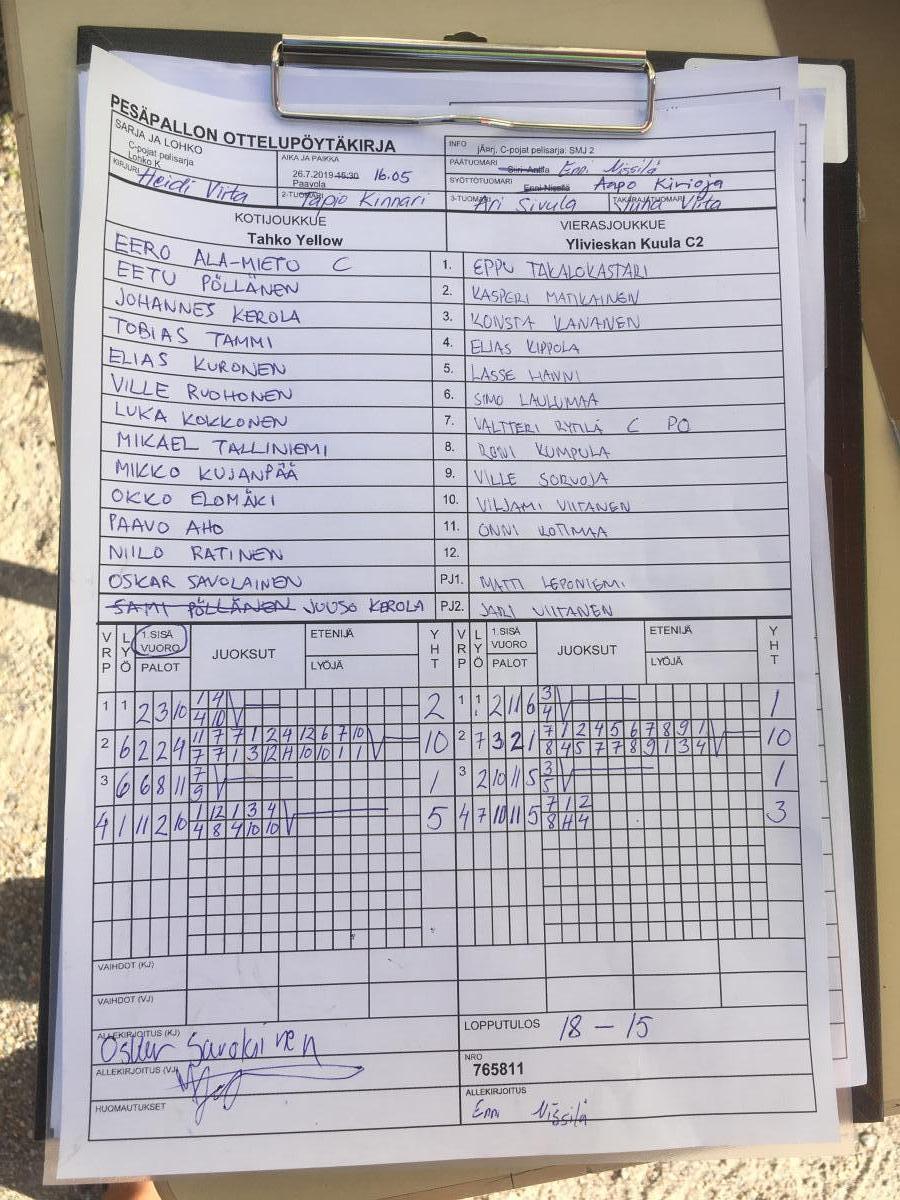 PESÄPALLON OTTELUPÖYTÄKIRJA
SARJA JA LOHKO
C-pojat pelisarja
Lohko K
AIKA JA PAIKKA
26.7.2019 15:30 16.05
Paavola
INFO
jÄrj. C-pojat pelisarja: SMJ 2
PÄÄTUOMARI Siiri Anttila Enni Nissilä
SYÖTTÖTUOMARI Enni Nissilä Aapo Kinioja
KIRJURI Heidi Virta
2-TUOMARI Tapio Kinnari
3-TUOMARI Ari Sivula
TAKARAJATUOMARI Juha Virta
KOTIJOUKKUE
Tahko Yellow
VIERASJOUKKUE
Ylivieskan Kuula C2
EERO ALA-MIETO C 1. EPPU TAKALOKASTARI
EETU PÖLLÄNEN 2. KASPERI MATIKAINEN
JOHANNES KEROLA 3. KONSTA KANANEN
TOBIAS TAMMI 4. ELIAS KIPPOLA
ELIAS KURONEN 5. LASSE HANNI
VILLE RUOHONEN 6. SIMO LAULUMAA
LUKA KOKKONEN 7. VALTTERI RYTILÄ C PO
MIKAEL TALLINIEMI 8. RONI KUMPULA
MIKKO KUJANPÄÄ 9. VILLE SORVOJA
OKKO ELOMÄKI 10. VILJAMI VIITANEN
PAAVO AHO 11. ONNI KOTIMAA
NIILO RATINEN 12.
OSKAR SAVOLAINEN PJ1. MATTI LEPONIEMI
SAMI PÖLLÄNEN JUUSO KEROLA PJ2. JARI VIITANEN
VRP LYÖ 1.SISÄ VUORO PALOT JUOKSUT ETENIJÄ LYÖJÄ YHT
VRP LYÖ 1.SISÄ VUORO PALOT JUOKSUT ETENIJÄ LYÖJÄ YHT
1 1 2 3 10 1 4 2 1 1 2 11 6 3 1
4 10 4
2 6 2 2 4 11 7 7 1 2 4 12 6 7 10 10 2 7 3 2 1 7 1 2 4 5 6 7 8 9 1 10
7 7 1 3 12 H 10 10 1 1 8 4 5 7 7 8 9 1 3 4
3 6 6 8 11 7 1 3 2 10 11 5 3 1
9 5
4 1 11 2 10 1 12 1 3 4 5 4 7 10 11 5 7 1 2 3
4 8 4 10 10 8 H 4
VAIHDOT (KJ)
VAIHDOT (VJ)
ALLEKIRJOITUS (KJ)
Oskar Savolainen
LOPPUTULOS 18 - 15
ALLEKIRJOITUS (VJ)
NRO
765811
HUOMAUTUKSET
ALLEKIRJOITUS
Enni Nissilä